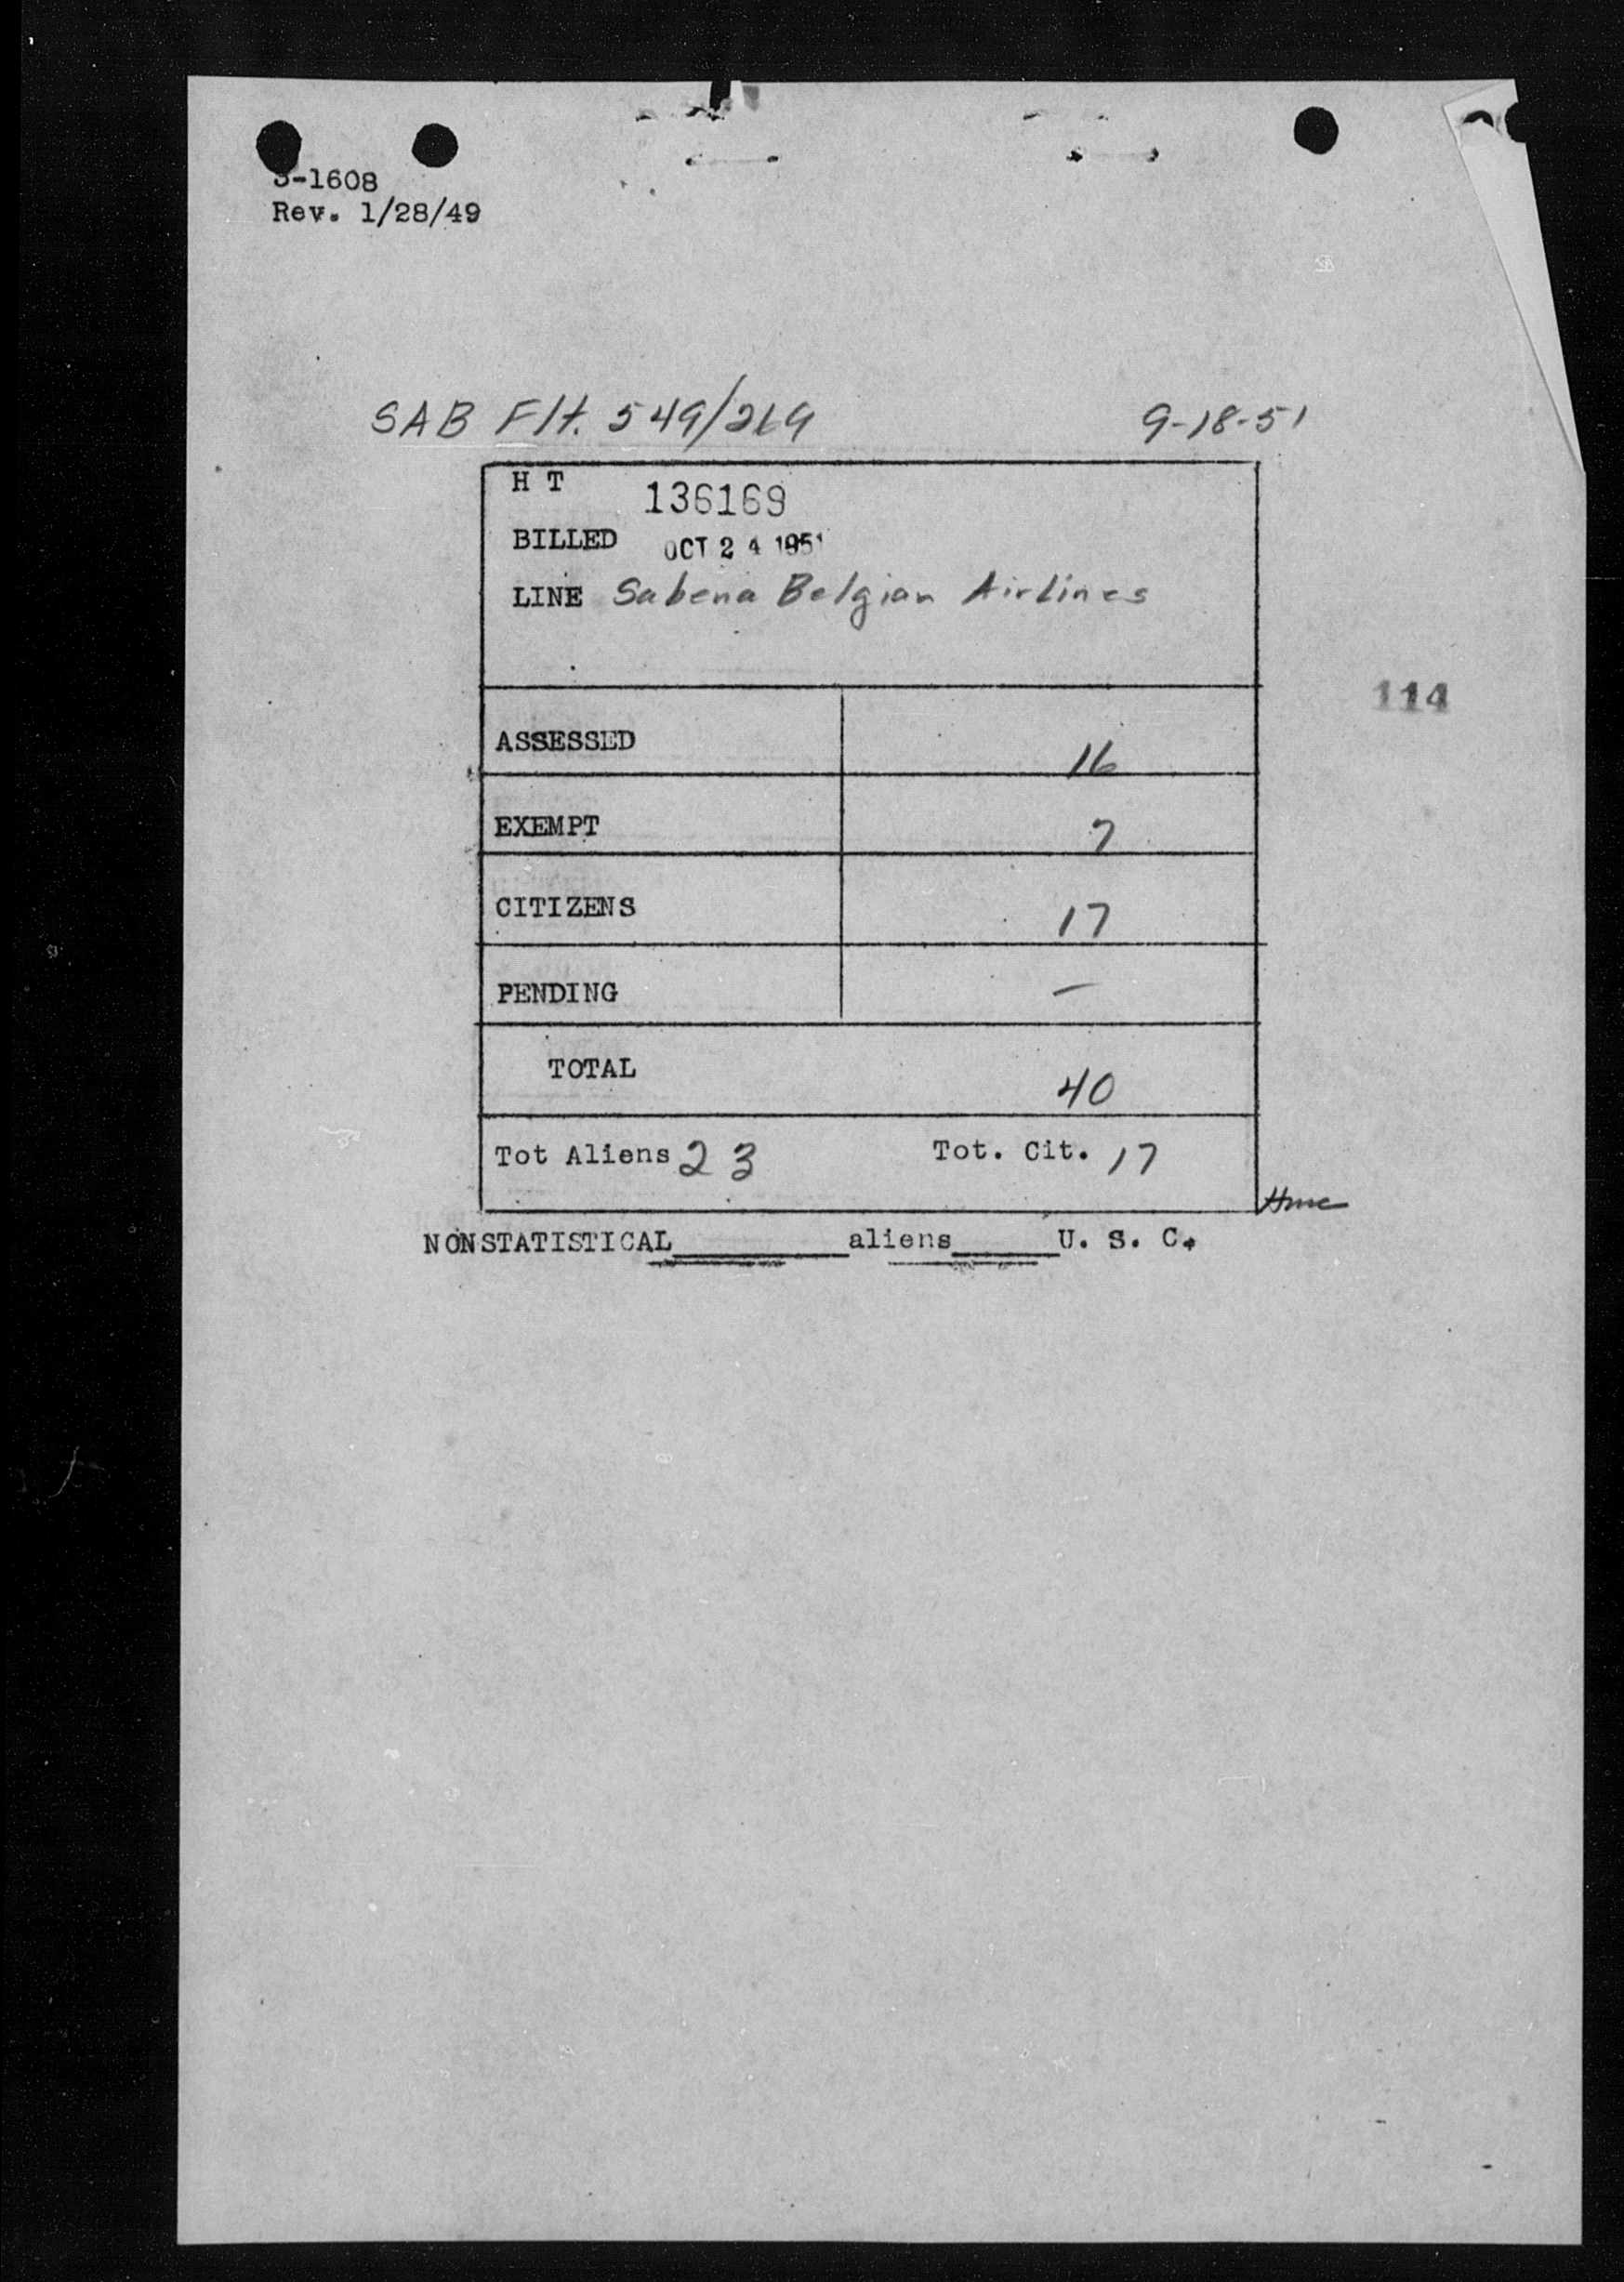 -1608
Rev. 1/28/49
SAB Flt. 549/269
9-18-51
H T 136169
BILLED OCT 24 1951
LINE Sabena Belgian Airlines
114
ASSESSED 16
EXEMPT 7
CITIZENS 17
PENDING —
TOTAL 40
Tot Aliens 23 Tot. Cit. 17
NONSTATISTICAL_________aliens_____U. S. C.